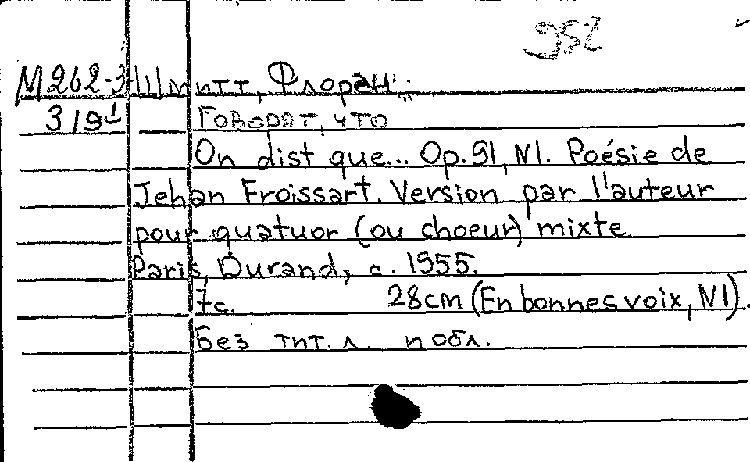 952
М262-3 Шмитт, Флоран.
319¹ Говорят, что
On dist que... Op. 91, N1. Poésie de
Jehan Froissart. Version par l'auteur
pour quatuor (ou choeur) mixte
Paris, Durand, c. 1955.
7с. 28cm (En bonnes voix, N1).
Без тит. л. и обл.